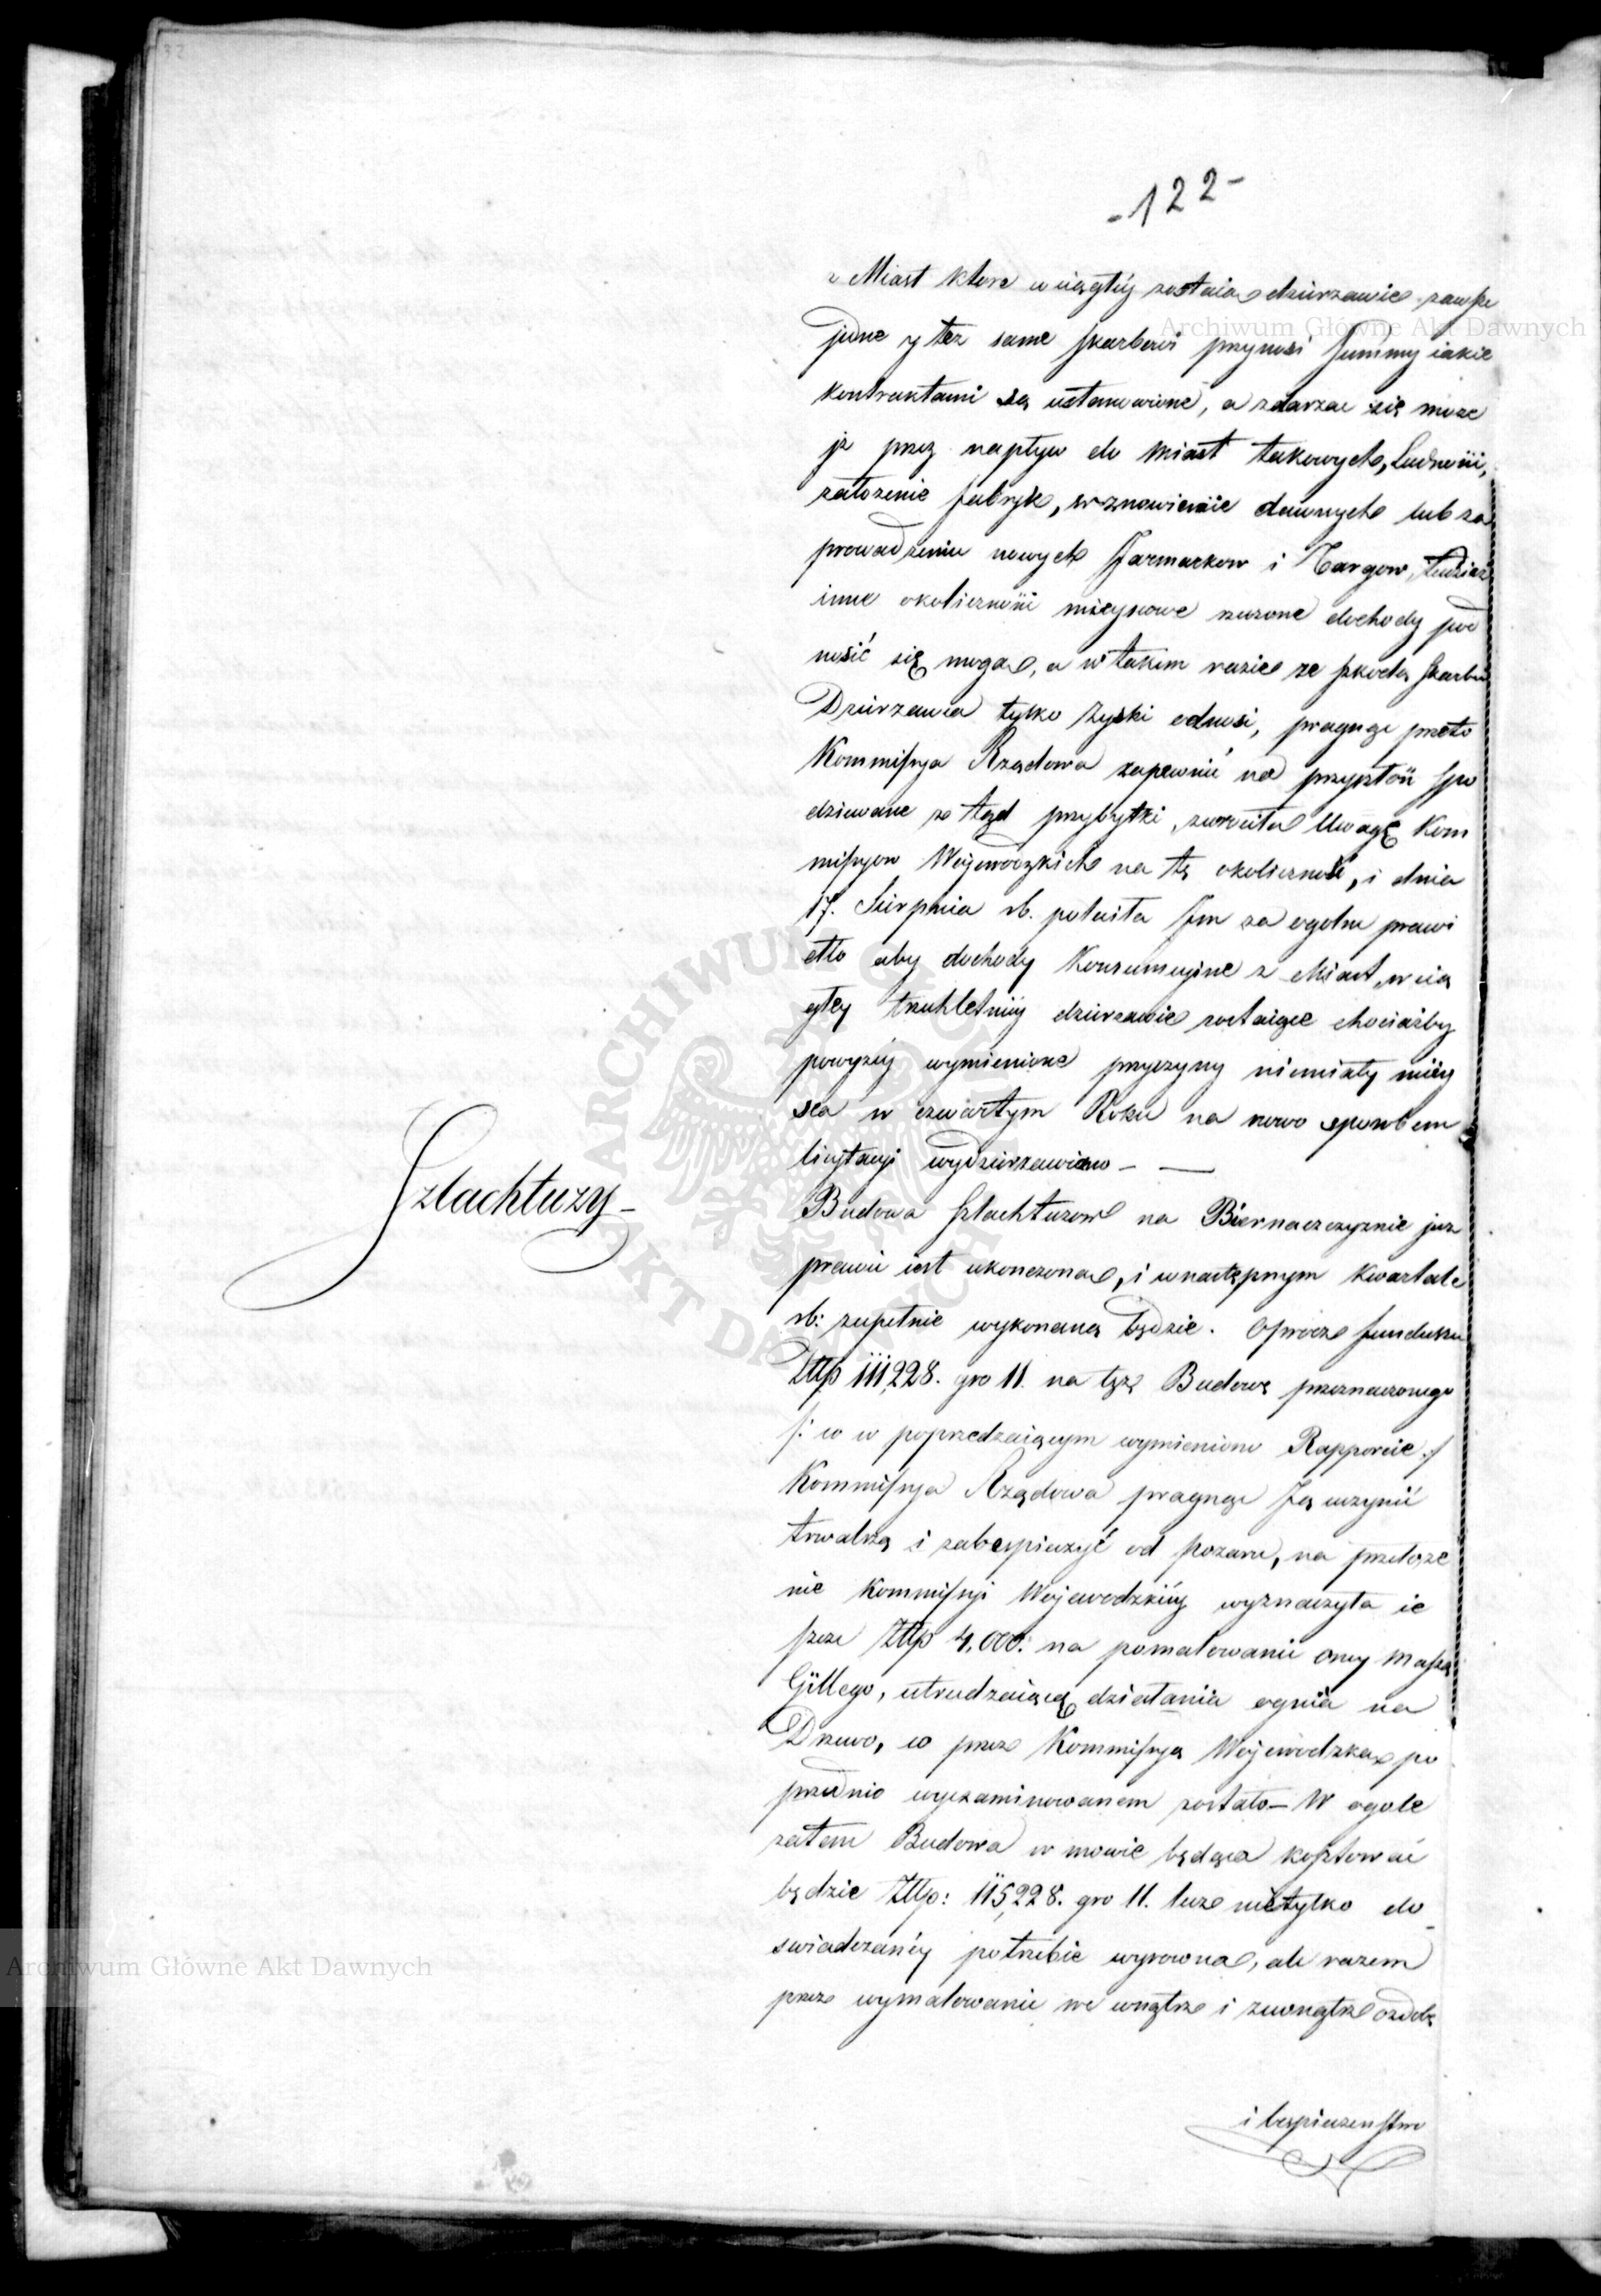 -122-
z Miast które w ciągłéy zostaią dzierzawie zawsze
jedne y też same skarbowi przynosi Summy iakie
kontraktami są ustanowione, a zdarzać się może
że przez napływ do Miast takowych, Ludności,
założenie fabryk, wznowienie dawnych lub za
prowadzenie nowych Jarmarkow i Targow, tudzież
inne okoliczności mieyscowe rzeczone dochody pod
nosić się mogą, a w takim razie ze szkodą skarbu
Dzierzawca tylko zyski odnosi, pragnąc przeto
Kommissya Rządowa zapewnić na przyszłość spo
dziewane ztąd przybytki, zwróciła Uwagę Kom
missyow Wojewodzkich na tę okoliczność, i dnia
17. Sierpnia rb. poleciła Im za ogolne prawi
dło aby dochody Konsumcyine z Miast, w cią
głey trzechletniéy dzierzawie zostaiące chociażby
powyżéy wymienione przyczyny niemiały miéy
sca w czwartym Roku na nowo sposobem
licytacyi wydzierzawiano — —
Szlachtuzy —
Budowa szlachtuzow na Biernaczczyznie już
prawie iest ukonczoną, i w następnym kwartale
rb: zupełnie wykonaną będzie. Oprocz funduszu
Złłp 111,228. gro 11. na tęż Budowę przeznaczonego
/: co w poprzedzaiącym wymieniono Rapporcie :/
Kommissya Rządowa pragnąc Ją uczynić
trwalszą i zabespieczyć od pożaru, na przełoże
nie Kommissyi Wojewodzkiéy wyznaczyła ie
szcze Złłp 4,000: na pomalowanie oney massą
Gillego, utrudzaiącą działania ognia na
Drzewo, co przez Kommissyą Wojewodzką po
przednio wyexaminowanem zostało — W ogole
zatem Budowa w mowie będąca kosztować
będzie Złłp: 115,228. gro 11. lecz nietylko do-
swiadczanéy potrzebie wyrowna, ale razem
przez wymalowanie we wnątrz i zewnątrz ozdobę
i bespieczenstwo